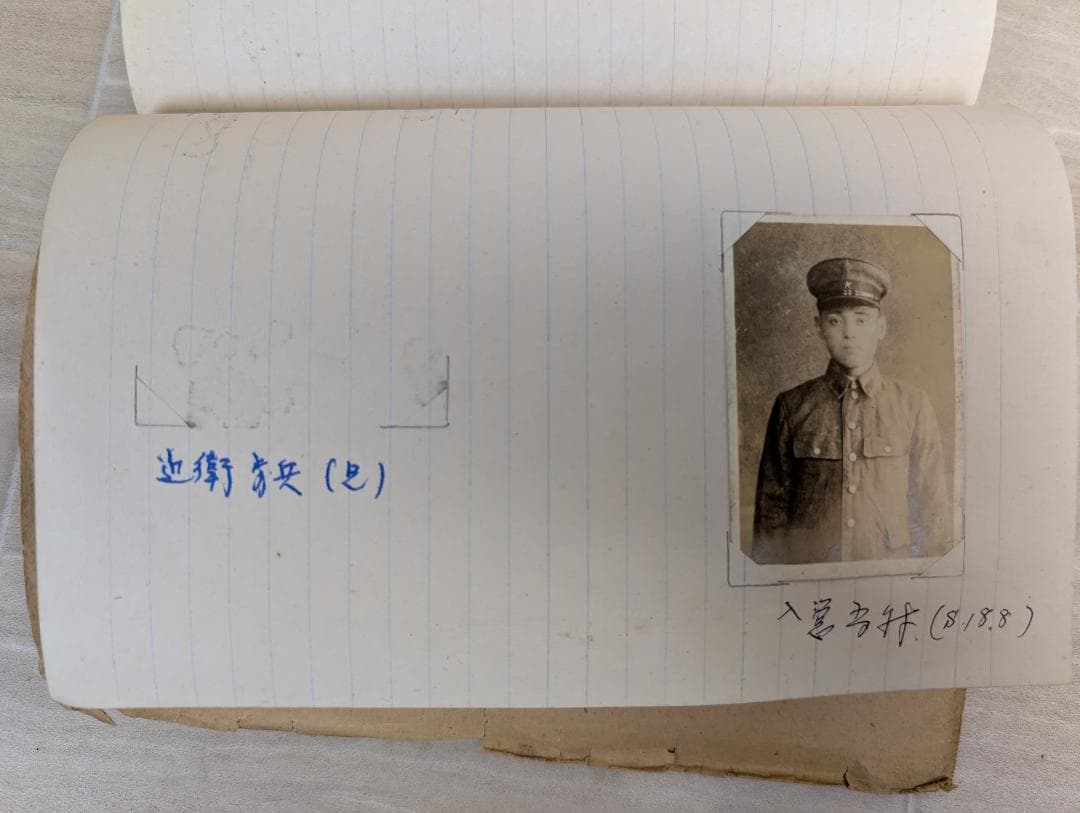 近衛歩兵(兄)
入営当时.(S.18.8)